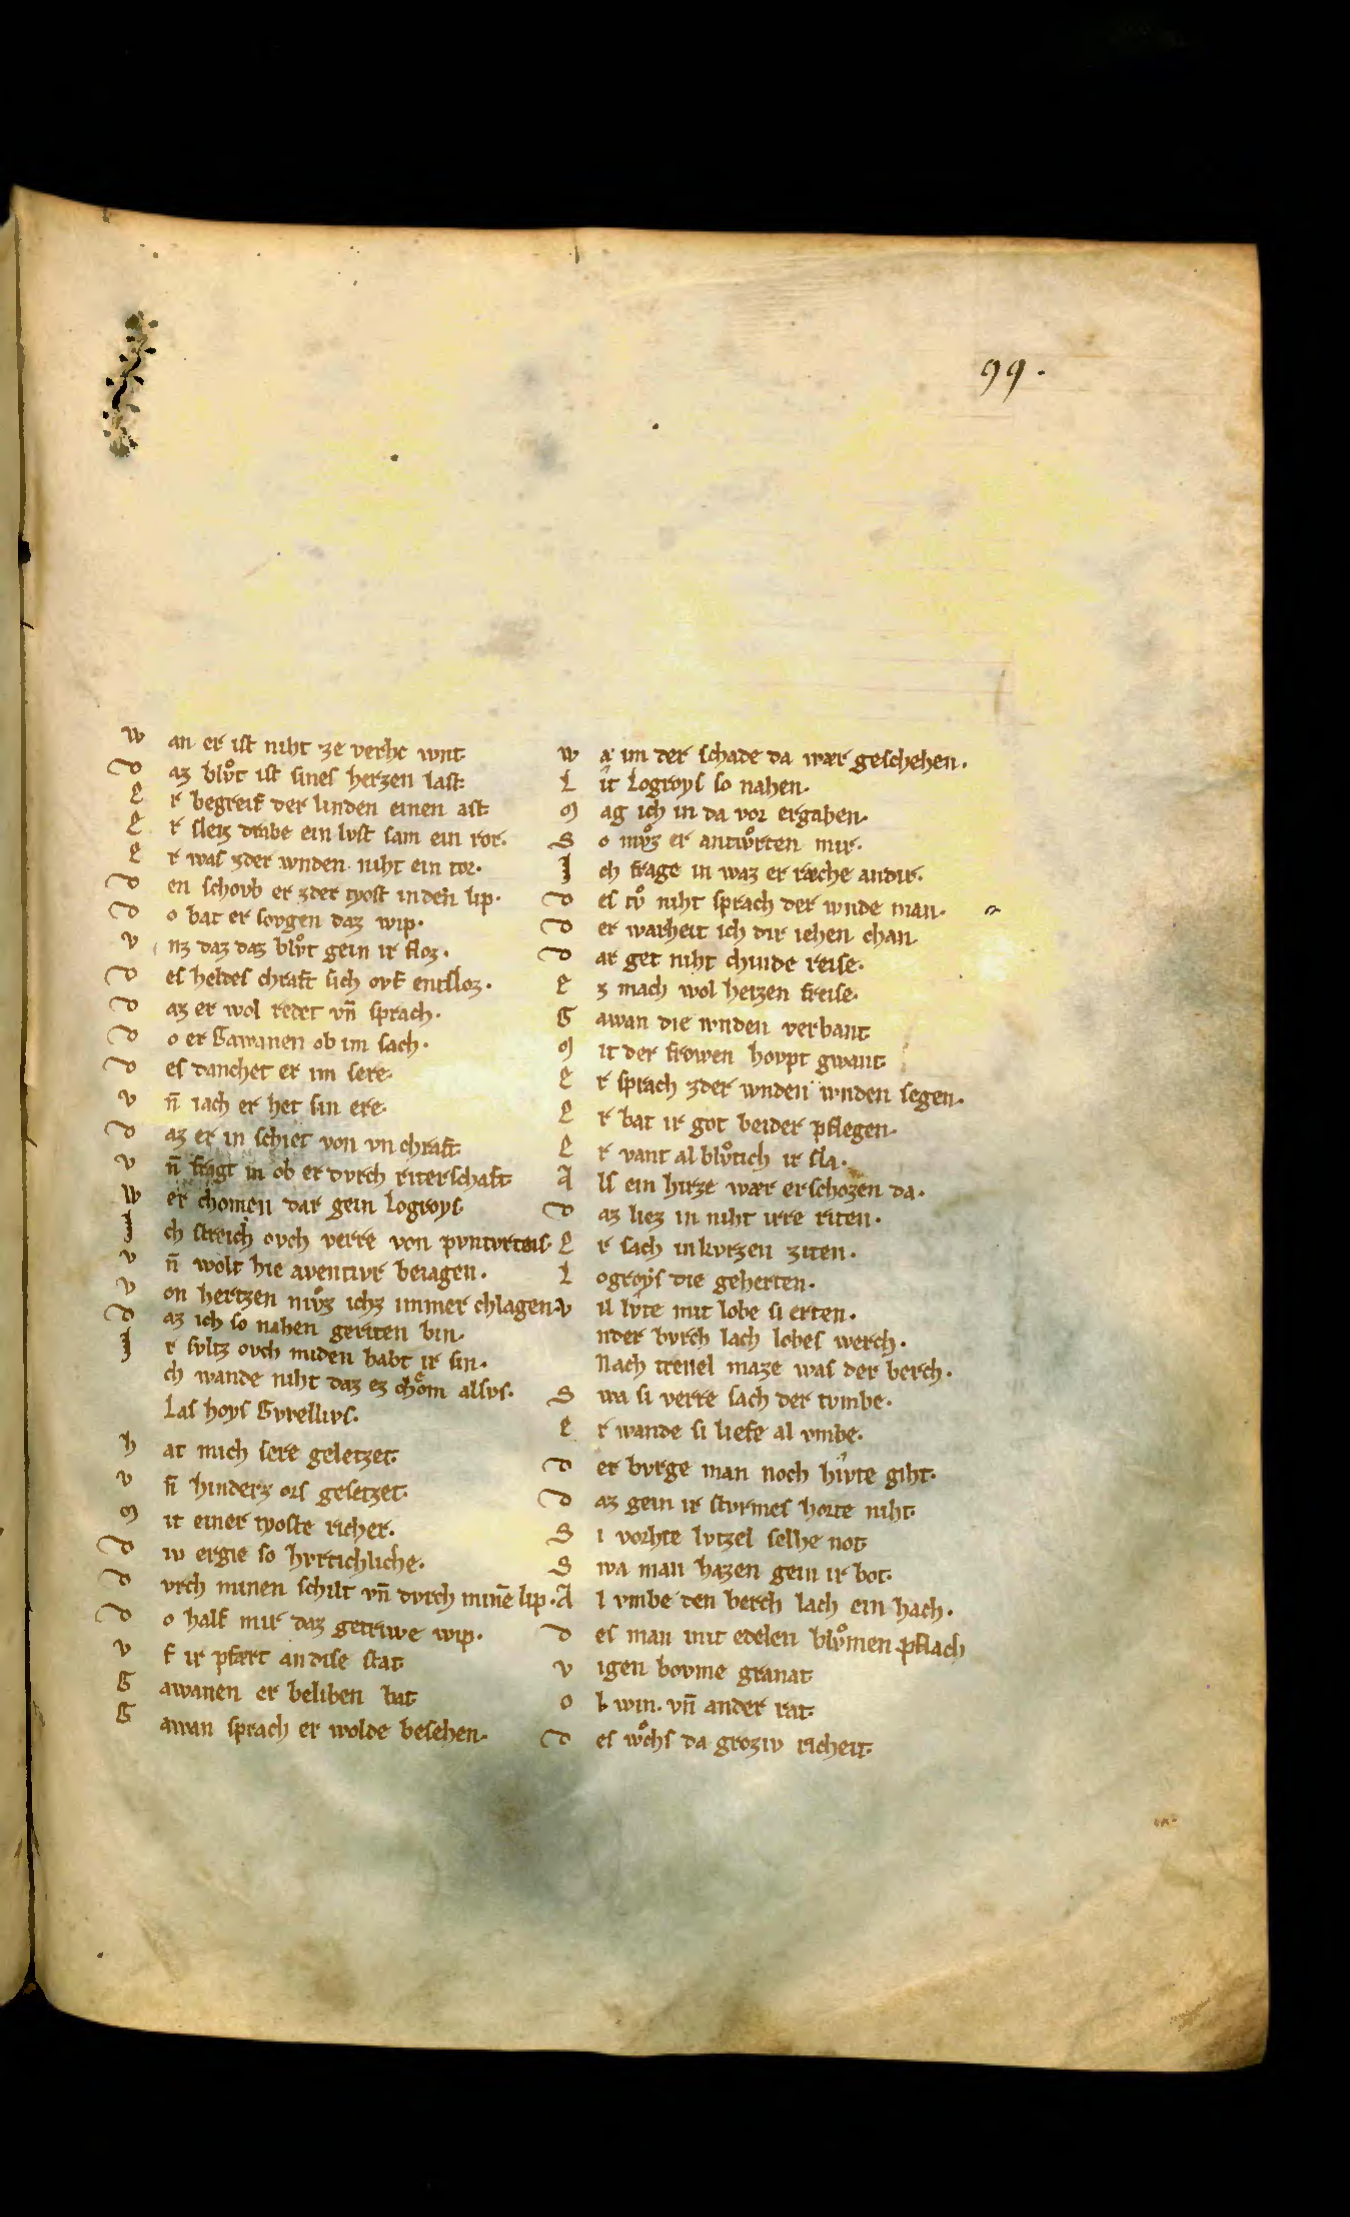 99.
W an er ist niht ze verhe wnt.
D az blvͦt ist sines herzen last.
E r begreif der linden einen ast.
E r sleiz drabe ein lvft sam ein ror.
E r was zder wnden niht ein tor.
D en schovb er zder tyost inden lip.
D o bat er sovgen daz wip.
V nz daz daz blvͦt gein ir floz.
D es heldes chraft sich ovf entsloz.
D az er wol redet vn̄ sprach.
D o er Gawanen ob im sach.
D es danchet er im sere.
V n̄ iach er het sin ere.
D az er in schiet von vnchraft.
V n̄ fragt in ob er dvrch riterschaft.
W er chomen dar gein Logroys.
J ch streich ovch verre von pvntvrtois.
V n̄ wolt hie aventivr beiagen.
V on hertzen mvͦz ichz immer chlagen.
D az ich so nahen geriten bin.
J r svltz ovch miden habt ir sin.
ch wande niht daz ez chͦom alsvs.
Las hoys Gvrellivs.
h at mich sere geletzet.
V n̄ hinderz ors gesetzet.
M it einer tyoste richer.
D iv ergie so hvrtichliche.
D vrch minen schilt vn̄ dvrch mine̅ lip.
D o half mir daz getriwe wip.
V f ir pfært an dise stat.
G awanen er beliben bat.
G awan sprach er wolde besehen.
W a im der schade da wær geschehen.
L it Logroys so nahen.
M ag ich in da vor ergahen.
S o mvͦz er antwͦrten mir.
J ch frage in waz er ræche an dir.
D es tvͦ niht sprach der wnde man.
D er warheit ich dir iehen chan.
D ar get niht chinde reise.
E z mach wol heizen freise.
G awan die wnden verbant.
M it der frowen hovpt gwant.
E r sprach zder wnden wnden segen.
E r bat ir got beider pflegen.
E r vant al blvͦtich ir sla.
A ls ein hirze wær erschozen da.
D az liez in niht irre riten.
E r sach in kvrzen ziten.
L ogroys die geherten.
V il lvte mit lobe si erten.
nder bvrch lach lobes werch.
Nach trenel maze was der berch.
S wa si verre sach der tvmbe.
E r wande si liefe al vmbe.
D er bvrge man noch hivte giht.
D az gein ir stvrmes horte niht.
S i vorhte lvtzel selhe not.
S wa man hazen gein ir bot.
A l vmbe den berch lach ein hach.
D es man mit edelen blvͦmen pflach.
V igen bovme granat.
O l. win. vn̄ ander rat.
D es wͦchs da groziv richeit.